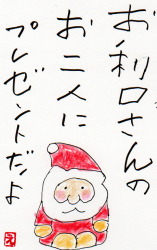 お利口さんの
お二人に
プレゼントだよ
え